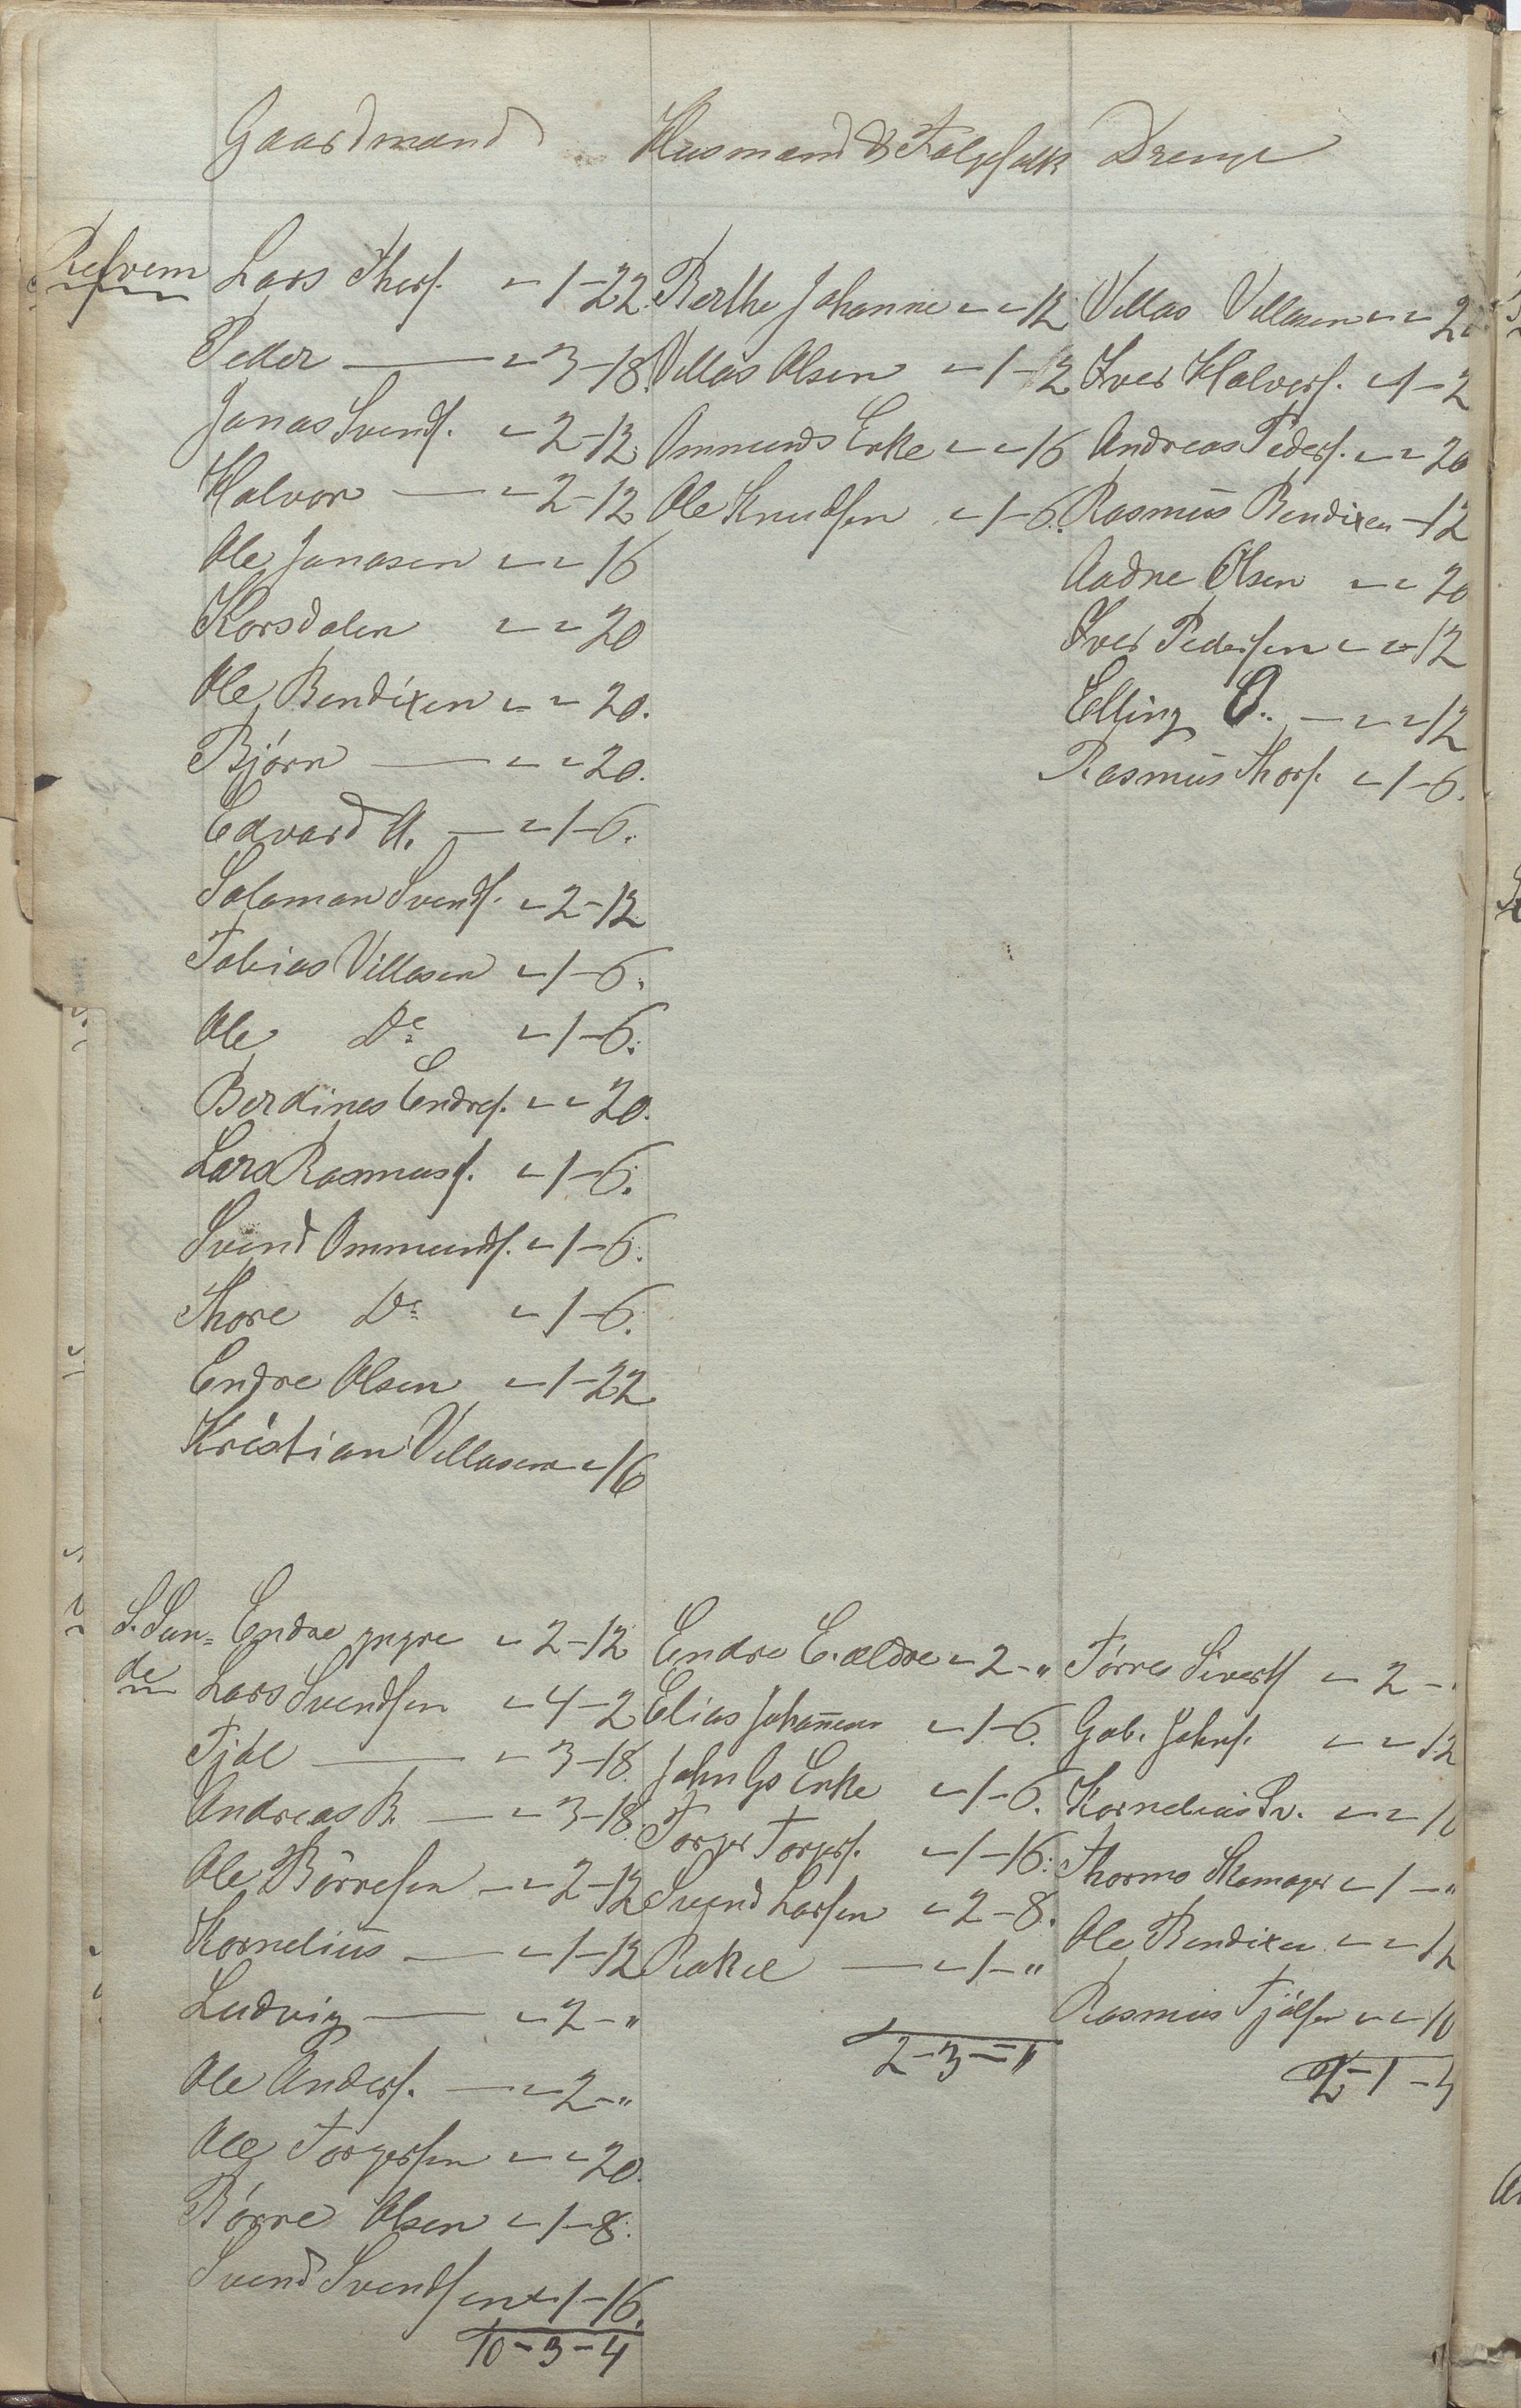 Gaardmand Husmand & Folgefolk Drenge
Refvem Lars Thorf. " 1-22. Berthe Johanne " " 12 Villas Villasen " " 20
Peder — " 3-18. Villas Olsen " 1-12 Iver Halvorf. " 1-2
Jonas Svendf. " 2-12. Ommunds Enke " " 16 Andreas Pedersf. " " 20
Halvor — " 2-12 Ole Knudsen " 1-6. Rasmus Bendixen - 12
Ole Jonasen " " 16 Aadne Olsen " " 20
Korsdalen " " 20 Iver Pedersen " " 12
Ole Bendixen " " 20. Elling O. — " " 12
Bjørn — " " 20. Rasmus Thorf. " 1-6.
Edvard A. — " 1-6.
Salamon Svendf. " 2-12
Tobias Villasen " 1-6.
Ole Do " 1-6.
Berdines Endref. " " 20.
Lars Rasmusf. " 1-6.
Svend Ommundf. " 1-6.
Thore Do " 1-6.
Endre Olsen " 1-22
Kristian Villasen " 16
S. Sun= Endre yngre " 2-12 Endre E. ældre " 2-" Tørres Sivertf " 2-"
de Lars Svendsen " 4-2 Elias Johannesen " 1-6. Gab. Johnf. " " 12
Tjøl — " 3-18. John Gs Enke " 1-6. Kornelius Sv. " " 16
Andreas R. — " 3-18. Torger Torgersf. " 1-16. Thormo Skomager " 1-"
Ole Børresen — " 2-12 Svend Larsen " 2-8. Ole Bendixen " " 12
Kornelius — " 1-12 Rakel — " 1-" Rasmus Tjølsen " " 16
Ludvig — " 2-" 2-3-" 2-1-4
Ole Andersf. — " 2-"
Ole Torgersen " " 20.
Børre Olsen " 1-8.
Svend Svendsen " 1-16.
10-3-4